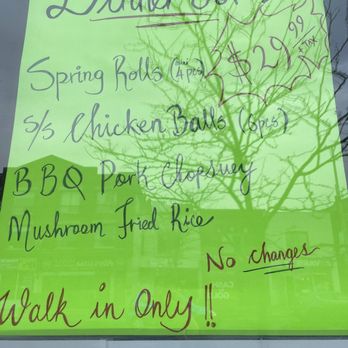 Dinner
$29.99
+ Tax
Spring Rolls (mini 4 pcs)
S/S Chicken Balls (8pcs)
BBQ Pork Chopsuey
Mushroom Fried Rice
No changes
Walk in Only !!